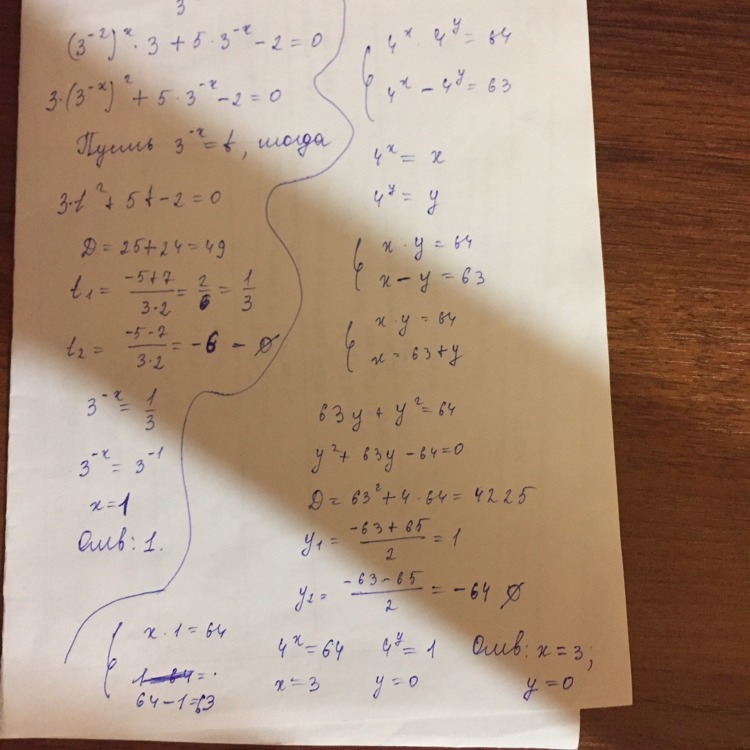 3
(3⁻²)ˣ · 3 + 5 · 3⁻ˣ - 2 = 0
3·(3⁻ˣ)² + 5 · 3⁻ˣ - 2 = 0
Пусть 3⁻ˣ = t, тогда
3·t² + 5t - 2 = 0
D = 25 + 24 = 49
t₁ = (-5+7)/(3·2) = 2/6 = 1/3
t₂ = (-5-7)/(3·2) = -6 - ∅
3⁻ˣ = 1/3
3⁻ˣ = 3⁻¹
x = 1
Отв: 1.
{ 4ˣ · 4ʸ = 64
4ˣ - 4ʸ = 63
4ˣ = x
4ʸ = y
{ x · y = 64
x - y = 63
{ x · y = 64
x = 63 + y
63y + y² = 64
y² + 63y - 64 = 0
D = 63² + 4 · 64 = 4225
y₁ = (-63+65)/2 = 1
y₂ = (-63-65)/2 = -64 ∅
{ x · 1 = 64
64 - 1 = 63
4ˣ = 64 4ʸ = 1 Отв: x = 3;
x = 3 y = 0 y = 0